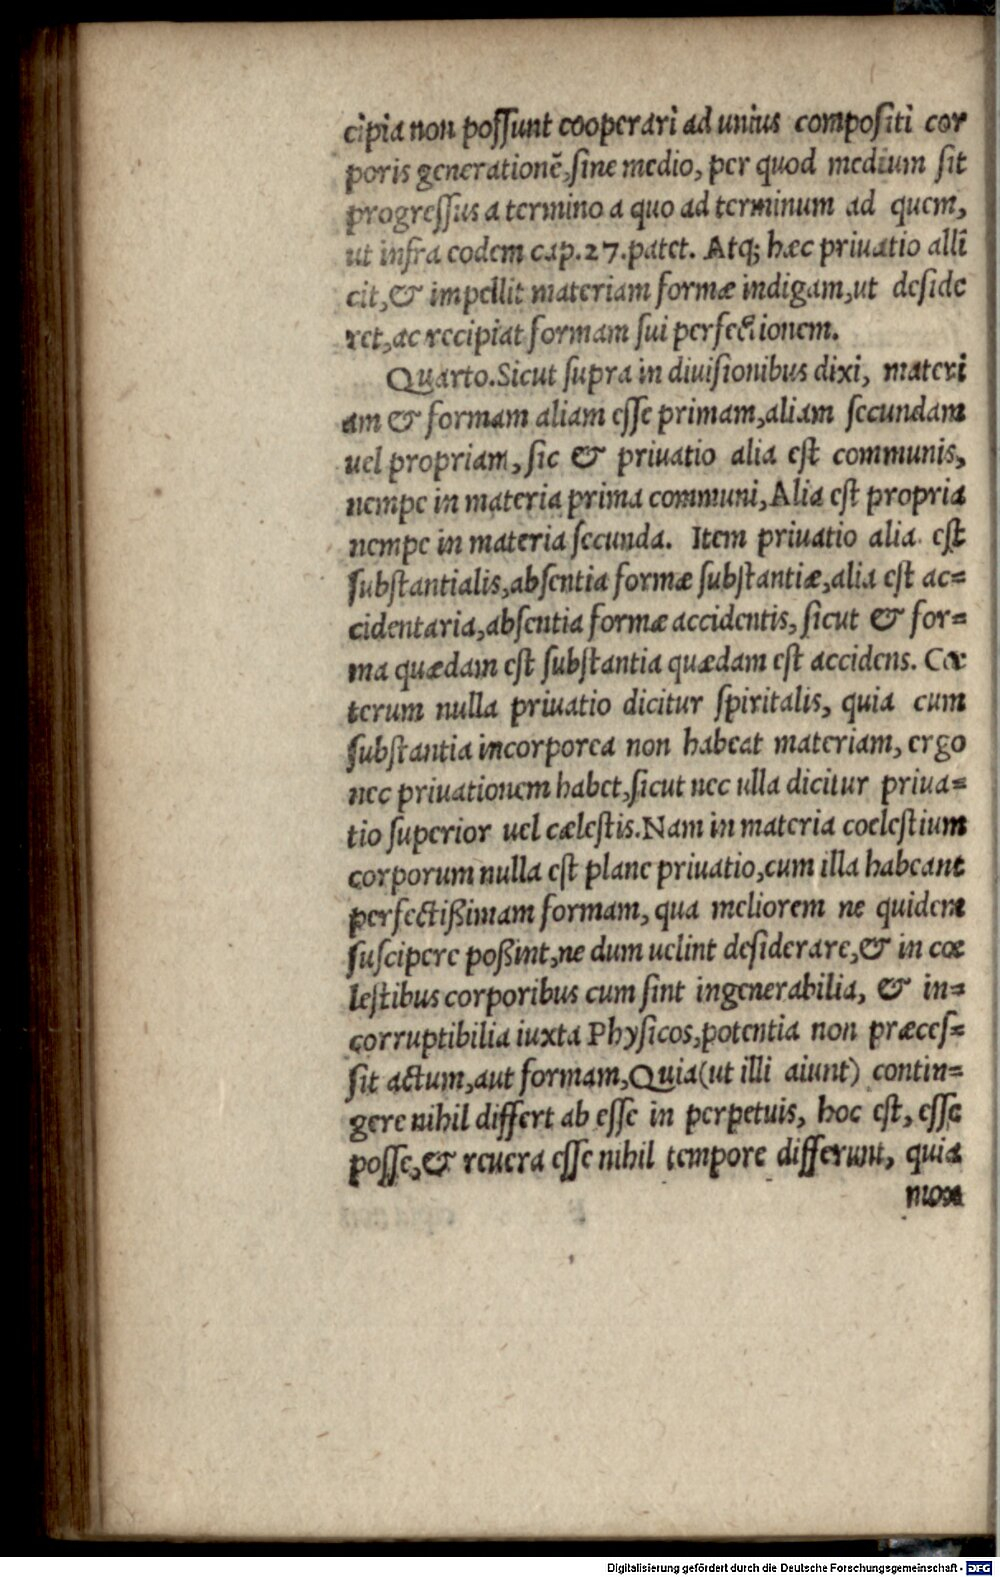 cipia non poſſunt cooperari ad unius compoſiti cor
poris generationẽ, ſine medio, per quod medium ſit
progreſſus a termino a quo ad terminum ad quem,
ut infra eodem cap. 27. patet. Atq; hæc priuatio alli
cit, & impellit materiam formæ indigam, ut deſide
ret, ac recipiat formam ſui perfectionem.
Quarto. Sicut ſupra in diuiſionibus dixi, materi
am & formam aliam eſſe primam, aliam ſecundam
uel propriam, ſic & priuatio alia eſt communis,
nempe in materia prima communi, Alia eſt propria
nempe in materia ſecunda. Item priuatio alia eſt
ſubſtantialis, abſentia formæ ſubſtantiæ, alia eſt ac=
cidentaria, abſentia formæ accidentis, ſicut & for=
ma quædam eſt ſubſtantia quædam eſt accidens. Cæ
terum nulla priuatio dicitur ſpiritalis, quia cum
ſubſtantia incorporea non habeat materiam, ergo
nec priuationem habet, ſicut nec ulla dicitur priua=
tio ſuperior uel cæleſtis. Nam in materia coeleſtium
corporum nulla eſt plane priuatio, cum illa habeant
perfectißimam formam, qua meliorem ne quidem
ſuſcipere poßint, ne dum uelint deſiderare, & in cœ
leſtibus corporibus cum ſint ingenerabilia, & in=
corruptibilia iuxta Phyſicos, potentia non præceſ=
ſit actum, aut formam, Quia (ut illi aiunt) contin=
gere nihil differt ab eſſe in perpetuis, hoc eſt, eſſe
poſſe, & reuera eſſe nihil tempore differunt, quia
mox
Digitalisierung gefördert durch die Deutsche Forschungsgemeinschaft - DFG